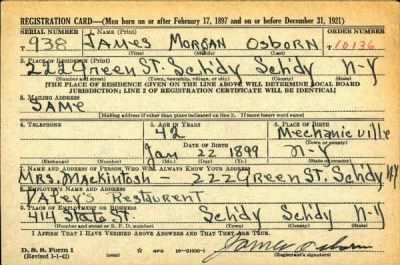 REGISTRATION CARD—(Men born on or after February 17, 1897 and on or before December 31, 1921)
SERIAL NUMBER 1. NAME (Print) ORDER NUMBER
T 938 JAMES MORGAN OSBORN 10136
(First) (Middle) (Last)
2. PLACE OF RESIDENCE (Print)
222 Green ST. Schdy Schdy N-Y
(Number and street) (Town, township, village, or city) (County) (State)
[THE PLACE OF RESIDENCE GIVEN ON THE LINE ABOVE WILL DETERMINE LOCAL BOARD
JURISDICTION; LINE 2 OF REGISTRATION CERTIFICATE WILL BE IDENTICAL]
3. MAILING ADDRESS
SAME
[Mailing address if other than place indicated on line 2. If same insert word same]
4. TELEPHONE 5. AGE IN YEARS 6. PLACE OF BIRTH
42 Mechanicville
DATE OF BIRTH (Town or county)
Jan 22 1899 N-Y
(Mo.) (Day) (Yr.) (State or country)
7. NAME AND ADDRESS OF PERSON WHO WILL ALWAYS KNOW YOUR ADDRESS
Mrs MackinTosh - 222 Green ST. Schdy NY
8. EMPLOYER'S NAME AND ADDRESS
Restaurent
9. PLACE OF EMPLOYMENT OR BUSINESS
414 State ST. Schdy Schdy N-Y
(Number and street or R. F. D. number) (Town) (County) (State)
I AFFIRM THAT I HAVE VERIFIED ABOVE ANSWERS AND THAT THEY ARE TRUE.
D. S. S. Form 1
(Revised 1-1-42) (over) James Osborn
(Registrant's signature)